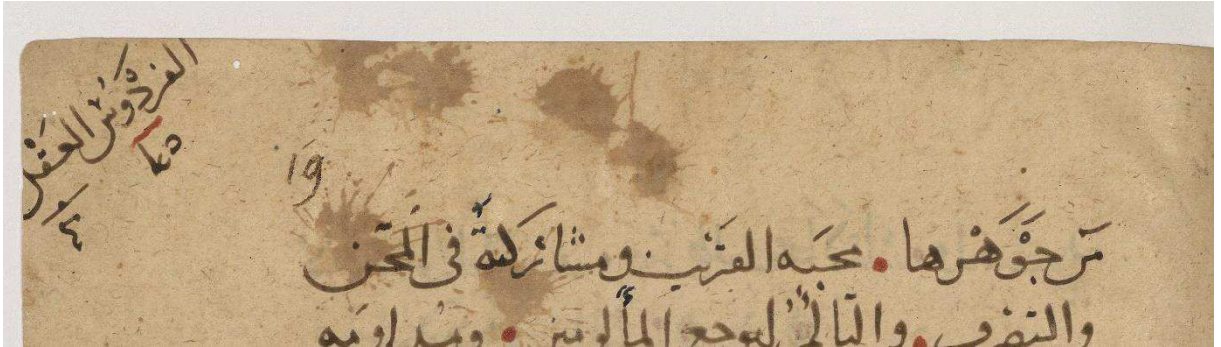 الفردوس العقلي
19
من جوهرها . محبه القريب ومشاركته في المحن
والتالم لتوجع المألومين . ومداومه